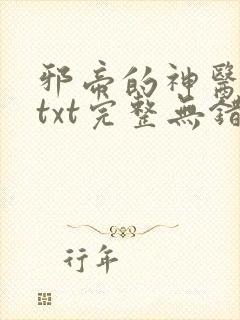 邪帝的神醫
txt完整無錯
行年